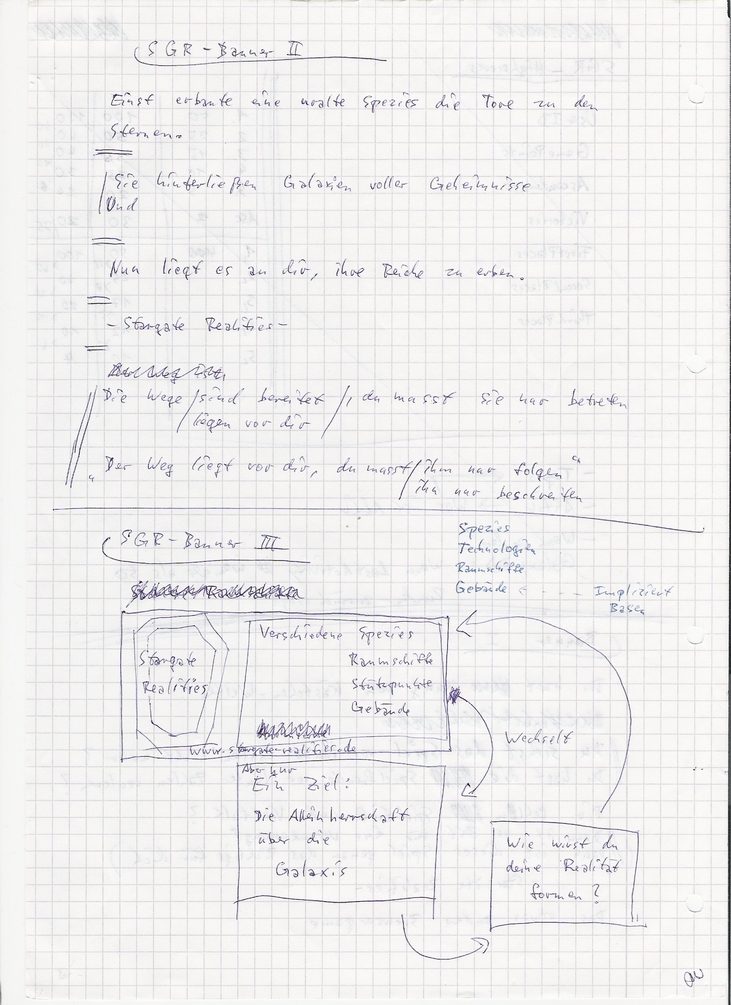 SGR - Banner II
Einst erbaute eine uralte Spezies die Tore zu den
Sternen.
Sie hinterließen Galaxien voller Geheimnisse
Und
Nun liegt es an dir, ihre Reiche zu erben.
- Stargate Realities -
Die Wege / sind bereitet /, du musst sie nur betreten
liegen vor dir
"Der Weg liegt vor dir, du musst / ihm nur folgen"
ihn nur beschreiten
SGR - Banner III
Spezies
Technologien
Raumschiffe
Gebäude - - - Impliziert
Basen
Stargate
Realities
Verschiedene Spezies
Raumschiffe
Stützpunkte
Gebäude
www.stargate-realities.de
Wechselt
Aber nur
Ein Ziel:
Die Alleinherrschaft
über die
Galaxis
Wie wirst du
deine Realität
formen?